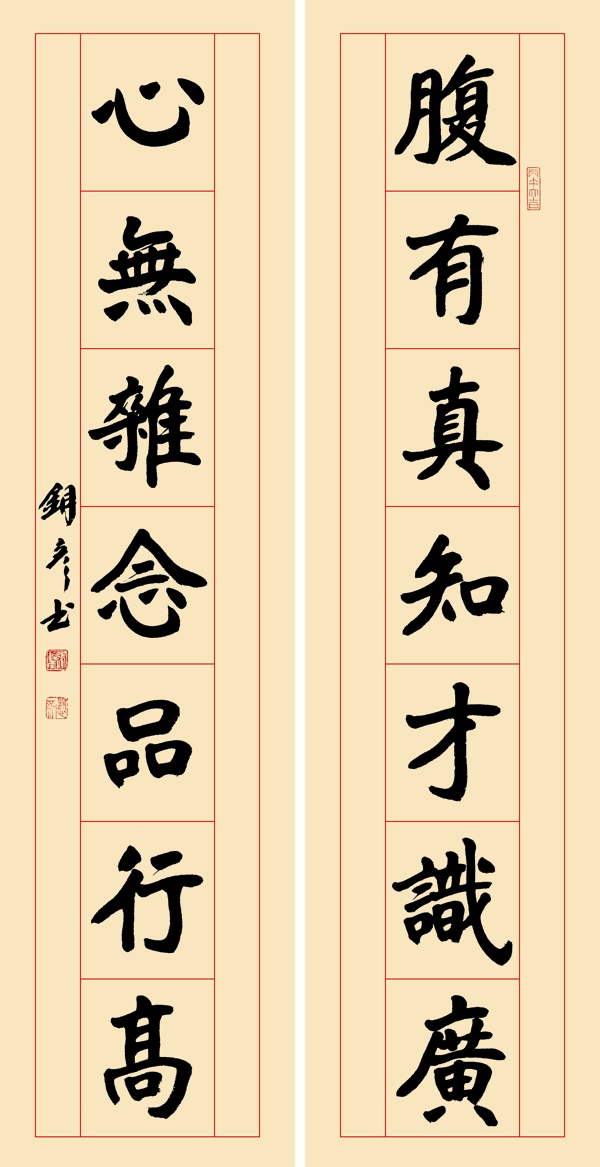 腹有真知才識廣
心無雜念品行高